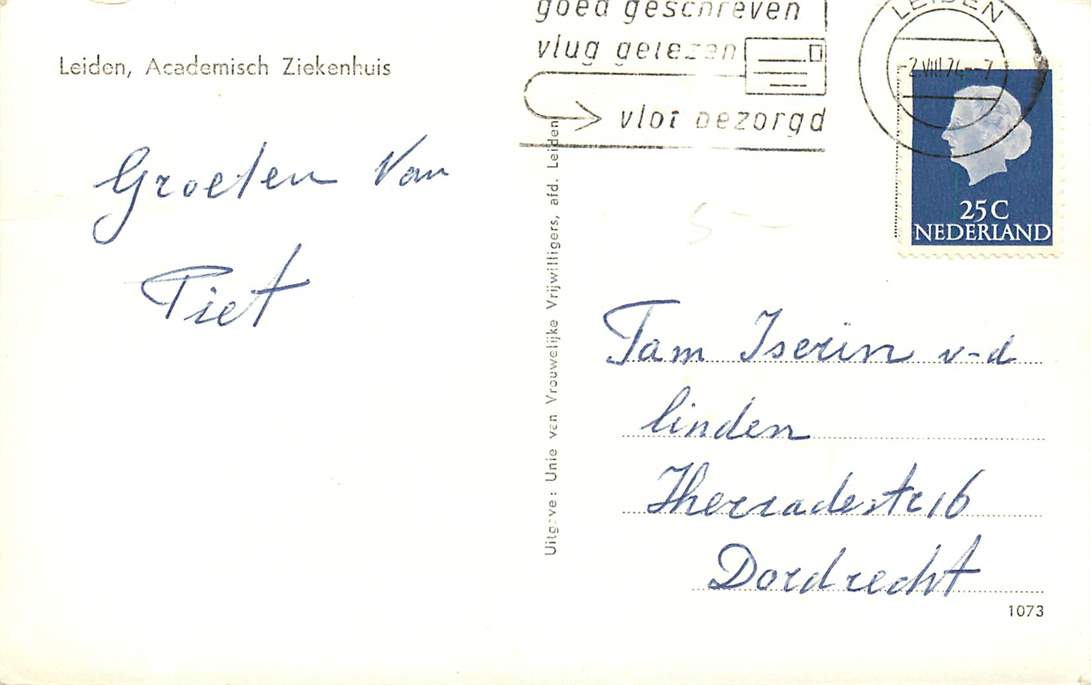 Leiden, Academisch Ziekenhuis
Groeten van
Piet
Uitgave: Unie van Vrouwelijke Vrijwilligers, afd. Leiden
goed geschreven
vlug gelezen
vlot bezorgd
LEIDEN
2.VIII.74.-7
25C
NEDERLAND
5-
Fam Iserin v-d
linden
Therradestr 16
Dordrecht
1073